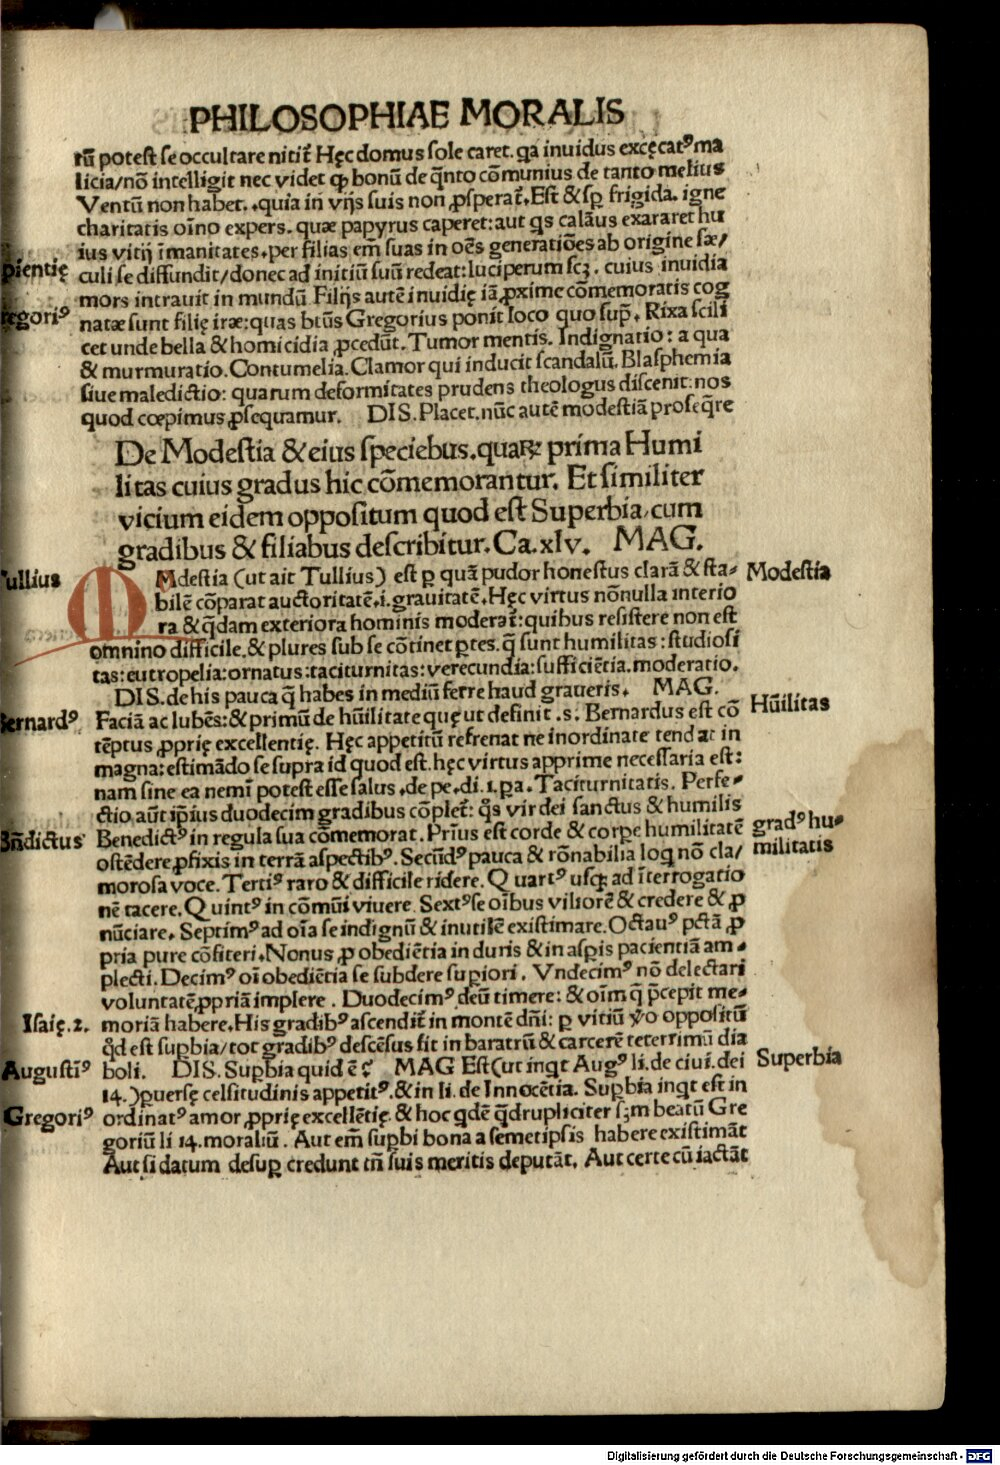 PHILOSOPHIAE MORALIS
tū potest se occultare nitit᷑ Hęc domus sole caret. qa inuidus excęcatꝰ ma
licia/nō intelligit nec videt ꝙ bonū de q̄nto cōmunius de tanto melius
Ventū non habet. quia in vijs suis non ꝓsperat᷑. Est & sꝑ frigida. igne
charitatis oīno expers. quæ papyrus caperet: aut qs calāus exararet hu
ius vitij īmanitates. per filias em̄ suas in oēs generatiōes ab origine sæ/
culi se diffundit/donec ad initiū suū redeat: luciperum scꝫ. cuius inuidia
pientię
mors intrauit in mundū Filijs autē inuidię iā ꝓxime cōmemoratis cog
natæ sunt filię iræ: quas btūs Gregorius ponit loco quo supᷓ. Rixa scili
egoriꝰ
cet unde bella & homicidia ꝓcedūt. Tumor mentis. Indignatio: a qua
& murmuratio. Contumelia. Clamor qui inducit scandalū. Blasphemia
siue maledictio: quarum deformitates prudens theologus discenit: nos
quod cœpimus ꝓsequamur. DIS. Placet. nūc autē modestiā proseq̄re
De Modestia & eius speciebus. quaꝝ prima Humi
litas cuius gradus hic cōmemorantur. Et similiter
vicium eidem oppositum quod est Superbia, cum
gradibus & filiabus describitur. Ca. xlv. MAG.
ullius
MOdestia (ut ait Tullius) est ꝑ quā pudor honestus clarā & sta-
Modestia
bilē cōparat auctoritatē. i. grauitatē. Hęc virtus nōnulla interio
ra & q̄dam exteriora hominis moderat᷑: quibus resistere non est
omnino difficile. & plures sub se cōtinet ꝑtes. q̄ sunt humilitas: studiosi
tas: eutropelia: ornatus: taciturnitas: verecundia: sufficiētia. moderatio.
DIS. de his pauca q̄ habes in mediū ferre haud graueris. MAG.
Bernardꝰ
Faciā ac lubēs: & primū de hūilitate quę ut definit .s. Bernardus est cō
Hūilitas
tēptus ꝓprię excellentię. Hęc appetitū refrenat ne inordinate tendat in
magna: estimādo se supra id quod est. hęc virtus apprime necessaria est:
nam sine ea nemī potest esse salus. de pe. di. 1. ꝑa. Taciturnitatis. Perfe-
ctio aūt ip̄ius duodecim gradibus cōplet᷑: q̄s vir dei sanctus & humilis
Bn̄dictus
Benedictꝰ in regula sua cōmemorat. Prīus est corde & corꝑe humilitatē
gradꝰ hu-
militatis
ostēdere ꝓfixis in terrā aspectibꝰ. Secūdꝰ pauca & rōnabilia loq̄ nō cla/
morosa voce. Tertiꝰ raro & difficile ridere. Quartꝰ usqꝫ ad īterrogatio
nē tacere. Quintꝰ in cōmūi viuere. Sextꝰ se oībus viliorē & credere & ꝓ
nūciare. Septimꝰ ad oīa se indignū & inutilē existimare. Octauꝰ pctā ꝓ
pria pure cōfiteri. Nonus ꝓ obediētia in duris & in aspis pacientiā am-
plecti. Decimꝰ oī obediētia se subdere supiori. Vndecimꝰ nō delectari
voluntatē ꝓpriā implere. Duodecimꝰ deū timere: & oīm q̄ p̄cepit me-
Isaię. 2.
moriā habere. His gradibꝰ ascendit᷑ in montē dn̄i: ꝑ vitiū v̊o oppositū
q̊d est supbia/ tot gradibꝰ descēsus fit in baratrū & carcerē teterrimū dia
Augustīꝰ
boli. DIS. Supbia quid ē ? MAG Est (ut inqt Augꝰ li. de ciui. dei
Superbia
14.) ꝑuersę celsitudinis appetitꝰ. & in li. de Innocētia. Supbia inqt est in
Gregoriꝰ
ordinatꝰ amor ꝓprię excellētię. & hoc qdē q̄drupliciter sꝫm beatū Gre
goriū li 14. moraliū. Aut em̄ supbi bona a semetipsis habere existimāt
Aut si datum desuꝑ credunt tn̄ suis meritis deputāt. Aut certe cū iactāt
Digitalisierung gefördert durch die Deutsche Forschungsgemeinschaft - DFG